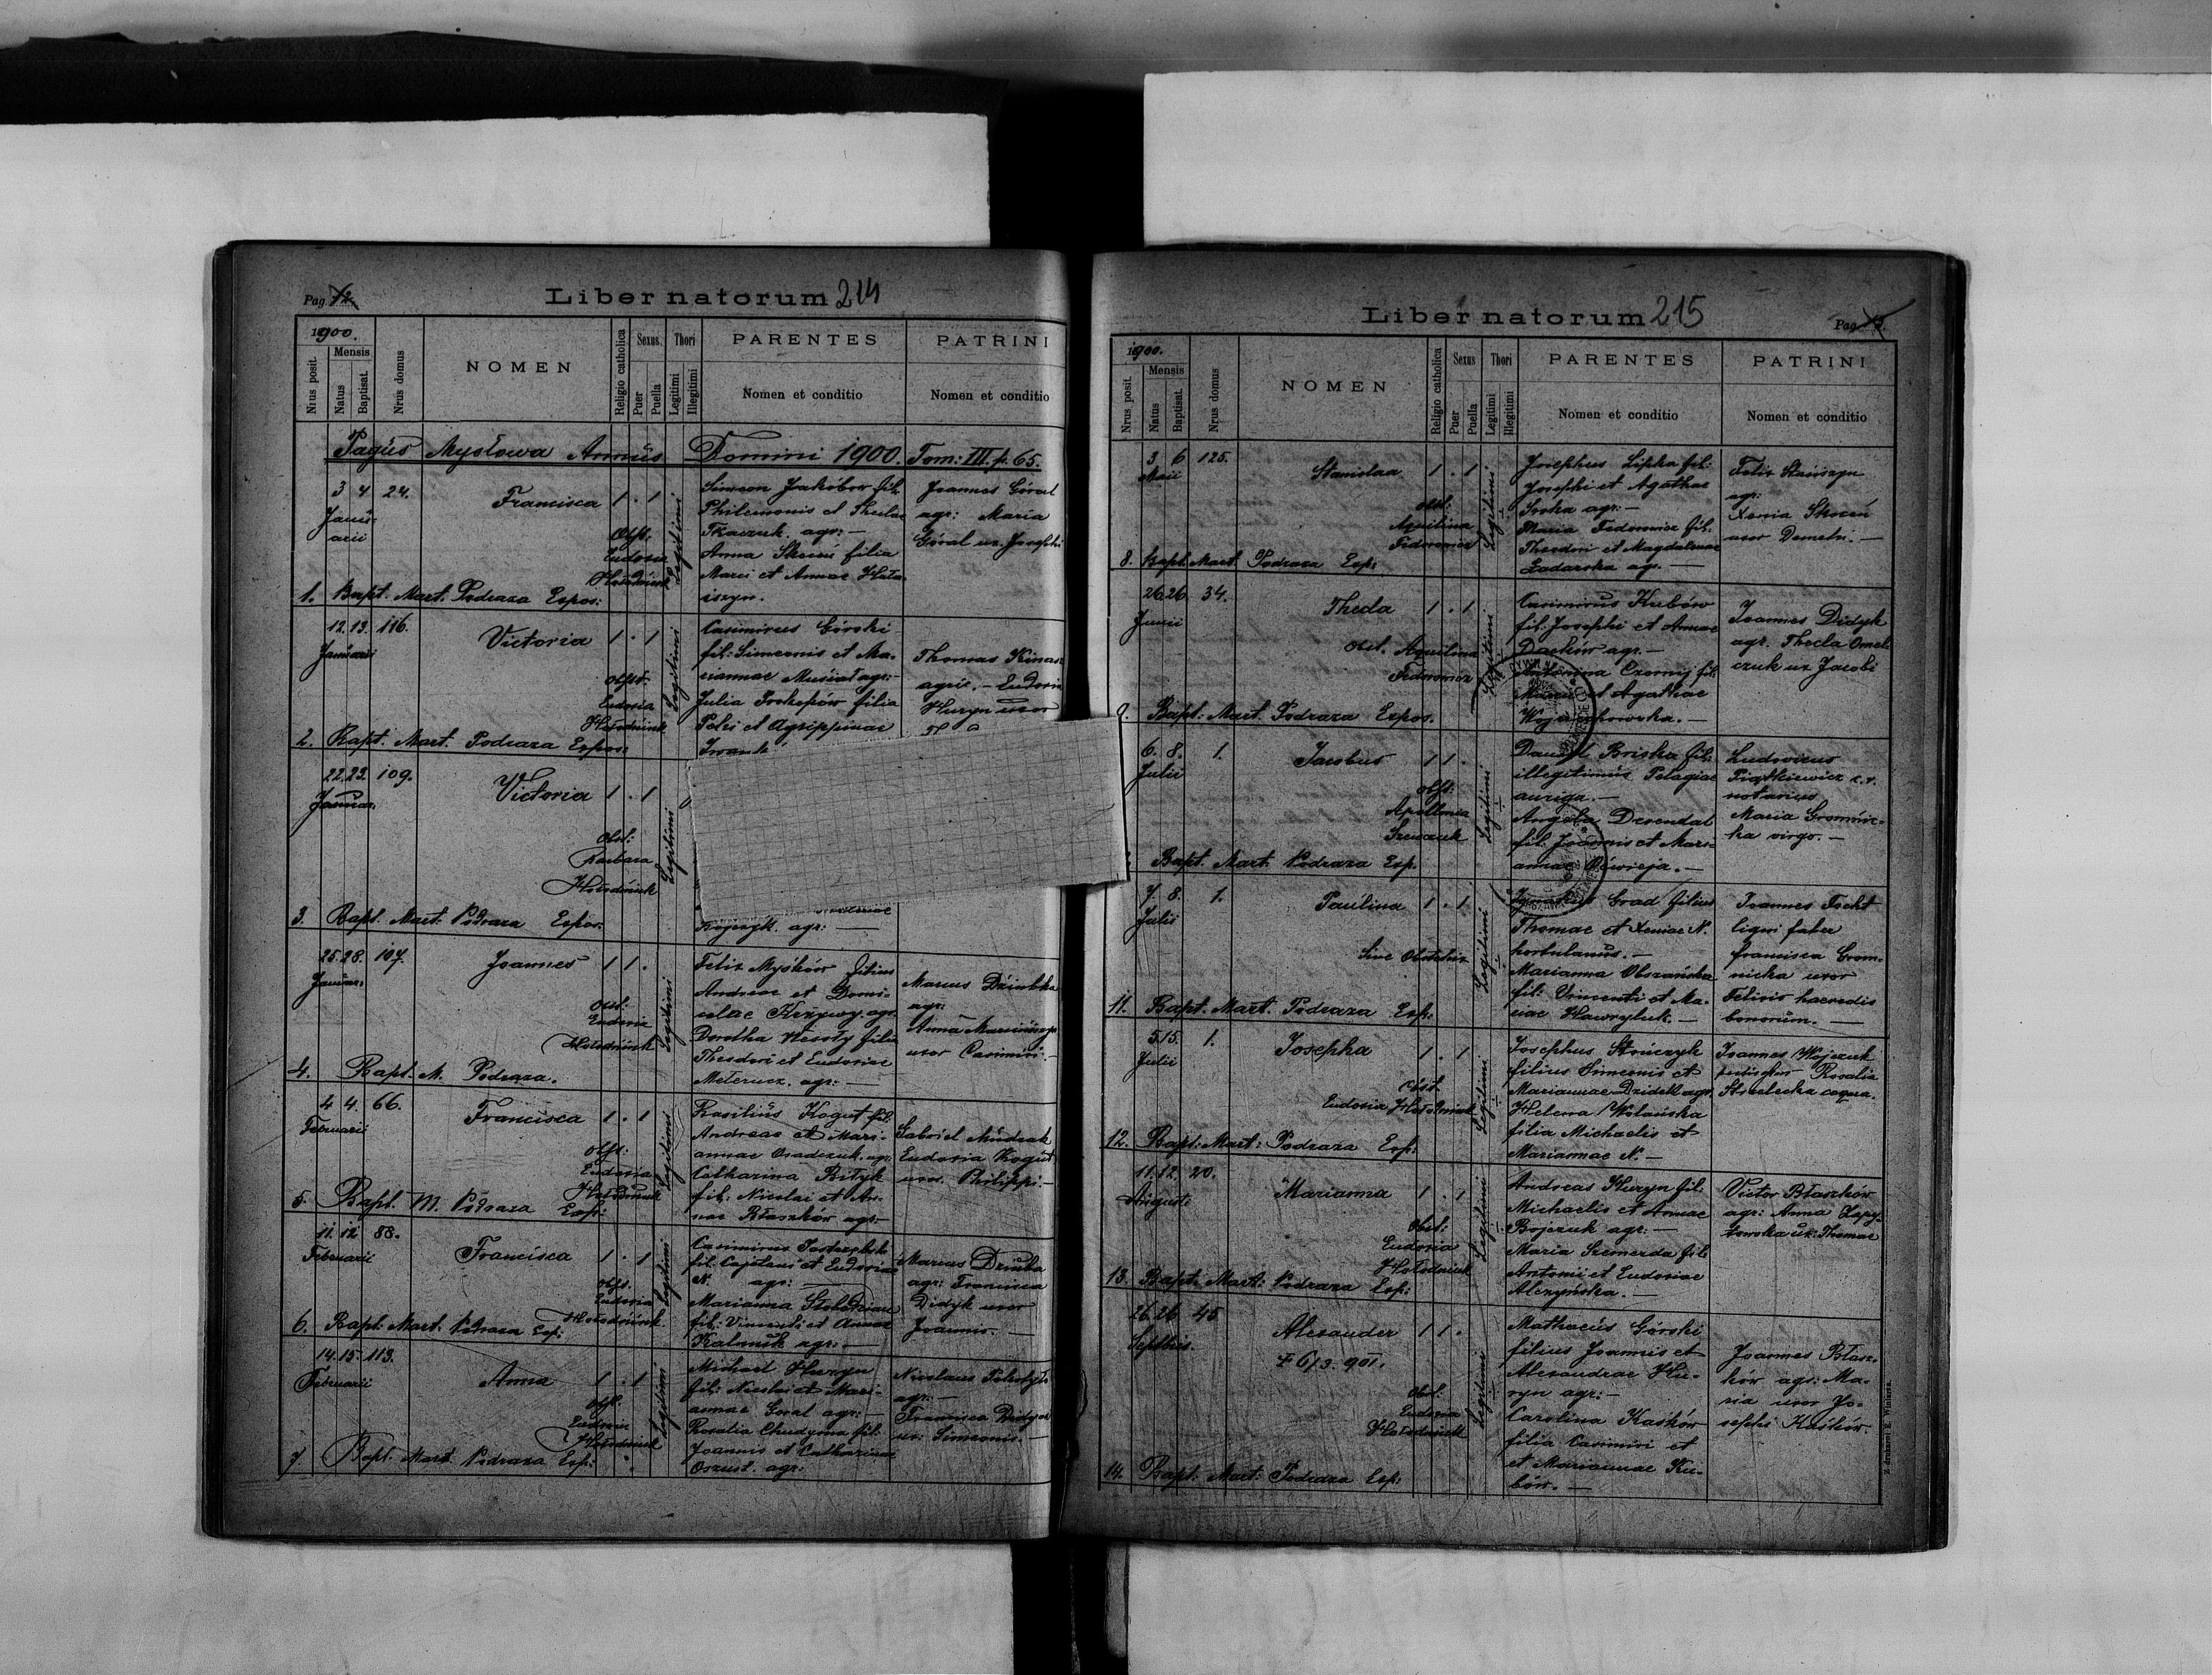 Pag. 72.
Liber natorum 214
1900.
Nrus posit.
Mensis
Natus
Baptisat.
Nrus domus
NOMEN
Religio catholica
Sexus
Puer
Puella
Thori
Legitimi
Illegitimi
PARENTES
Nomen et conditio
PATRINI
Nomen et conditio
Pagus Mysłowa Annus Domini 1900. Tom: III. p. 65.
3 4 24.
Januarii
Francisca 1 . 1
Obst:
Eudoxia
Hołodniuk
Legitimi
Simeon Jakóbów fil.
Philemonis et Theclae
Tkaczuk agr: —
Anna filia
Marci et Annae
Joannes Góral
agr: Maria
Góral ux. Josephi
1. Bapt. Mart. Podraza Expos:
12. 13. 116.
Januarii
Victoria 1 . 1
Obst.
Eudoxia
Hołodniuk
Legitimi
Casimirus Górski
fil: Simeonis et Ma-
riannae Musiał agr: —
Julia Prokopów filia
Petri et Agrippinae
Thomas
agric. — Eudoxia
Huryn uxor
2. Bapt. Mart. Podraza Expos:
22. 23. 109.
Januar.
Victoria 1 . 1
Obst:
Barbara
Hołodniuk
Legitimi
agr: —
3. Bapt. Mart. Podraza Expos.
25. 28. 107.
Januar:
Joannes 1 1 .
Obst:
Eudoxia
Hołodniuk
Legitimi
Felix Myśków filius
Andreae et Domi-
agr.
Dorothea Wesoły filia
Theodori et Eudoxiae
agr: —
Marcus
agr:
Anna
uxor Casimiri. —
4. Bapt. M. Podraza.
4 4. 66.
Februarii
Francisca 1 . 1
Obst:
Eudoxia
Hołodniuk
Legitimi
Basilius Kogut fil.
Andreae et Mari-
annae Osadczuk. agr:
Catharina Bityk
fil: Nicolai et An-
nae Błaszków agr: —
Gabriel Mudrak
Eudoxia Kogut
uxor. Philippi —
5. Bapt. M. Podraza Exp:
11. 12 88.
Februarii
Francisca 1 . 1
Obst.
Eudoxia
Hołodniuk
Legitimi
Casimirus
fil. Cajetani et Eudoxiae
N. agr: —
Marianna
fil: Vincenti et Annae
Kalmuk agr: —
Marcus Dziuba
agr: Francisca
Didyk uxor
Joannis. —
6. Bapt: Mart. Podraza Exp:
14. 15. 113.
Februarii
Anna 1 . 1
Obst.
Eudoxia
Hołodniuk
Legitimi
Michael Huryn
fil: Nicolai et Mari-
annae Góral agr: —
Rosalia Chudyma fil.
Joannis et Catharinae
agr:
Nicolaus
agr: —
Francisca Didyk
ux: Simeonis. —
7 Bapt. Mart Podraza Exp:
Liber natorum 215
Pag.
1900.
Nrus posit.
Mensis
Natus
Baptisat.
Nrus domus
NOMEN
Religio catholica
Sexus
Puer
Puella
Thori
Legitimi
Illegitimi
PARENTES
Nomen et conditio
PATRINI
Nomen et conditio
3 6 125.
Maii
Stanislaa 1 . 1
Obst:
Aquilina
Fedorowicz
Legitimi
Josephus Lipka fil:
Josephi et Agathae
Sroka agr: —
Maria Fedorowicz fil:
Theodori et Magdalenae
Ladarska agr. —
Felix Stańszyn
agr:
Xenia
uxor Demetri. —
8. Bapt. Mart. Podraza Exp:
26 26 34.
Junii
Thecla 1 . 1
Obst. Aquilina
Fedorowicz
Legitimi
Casimirus Kubów
fil: Josephi et Annae
Daćków agr. —
Antonina Czornij fil:
Marci et Agathae
Joannes Didyk
agr. Thecla Omel-
czuk ux Jacobi
9. Bapt: Mart. Podraza Expos.
6. 8. 1.
Julii
Jacobus 1 1 .
Obst:
Apollonia
Szewczuk
Legitimi
Daniel Briska fil:
illegitimus Pelagiae
auriga. —
Angela Derendal
fil: Joannis et Mari-
annae —
Ludovicus
Piątkiewicz c. r.
notarius
Maria Gromnic-
ka virgo. —
Bapt. Mart. Podraza Exp.
7. 8. 1.
Julii
Paulina 1 . 1
Sine Obstetrix
Legitimi
Grad filius
Thomae et Xeniae N.
hortulanus. —
Marianna Obszańska
fil: Vincenti et Ma-
riae Hawryluk. —
Joannes Focht
ligni faber
Francisca Grom-
nicka uxor
Felicis haeredis
bonorum. —
11. Bapt. Mart. Podraza Exp:
5 15. 1.
Julii
Josepha 1 . 1
Obst.
Eudoxia Hołodniuk
Legitimi
Josephus Stończyk
filius Simeonis et
Mariannae Dzidek agr.
Helena Wolańska
filia Michaelis et
Mariannae N. —
Joannes Wójczuk
Rosalia
Strzelecka coqua.
12. Bapt: Mart: Podraza Exp:
11. 12. 20.
Augusti
Marianna 1 . 1
Obst:
Eudoxia
Hołodniuk
Legitimi
Andreas Huryn fil:
Michaelis et Annae
Bojczuk agr: —
Maria Szemerda fil:
Antonii et Eudoxiae
Alczyńska. —
Victor Błaszków
agr: Anna Zapy-
towska ux: Thomae
13. Bapt: Mart: Podraza Exp:
26. 26 45
Septbris.
Alexander 1 1 .
† 6/3. 901.
Obst.
Eudoxia
Hołodniuk
Legitimi
Mathaeus Górski
filius Joannis et
Alexandrae Hu-
ryn agr: —
Carolina Kaśków
filia Casimiri et
et Mariannae Ku-
bów. —
Joannes Błasz-
ków agr: Ma-
ria uxor Jo-
sephi Kaśków.
14. Bapt: Mart: Podraza Exp:
Z drukarni E. Winiarza.